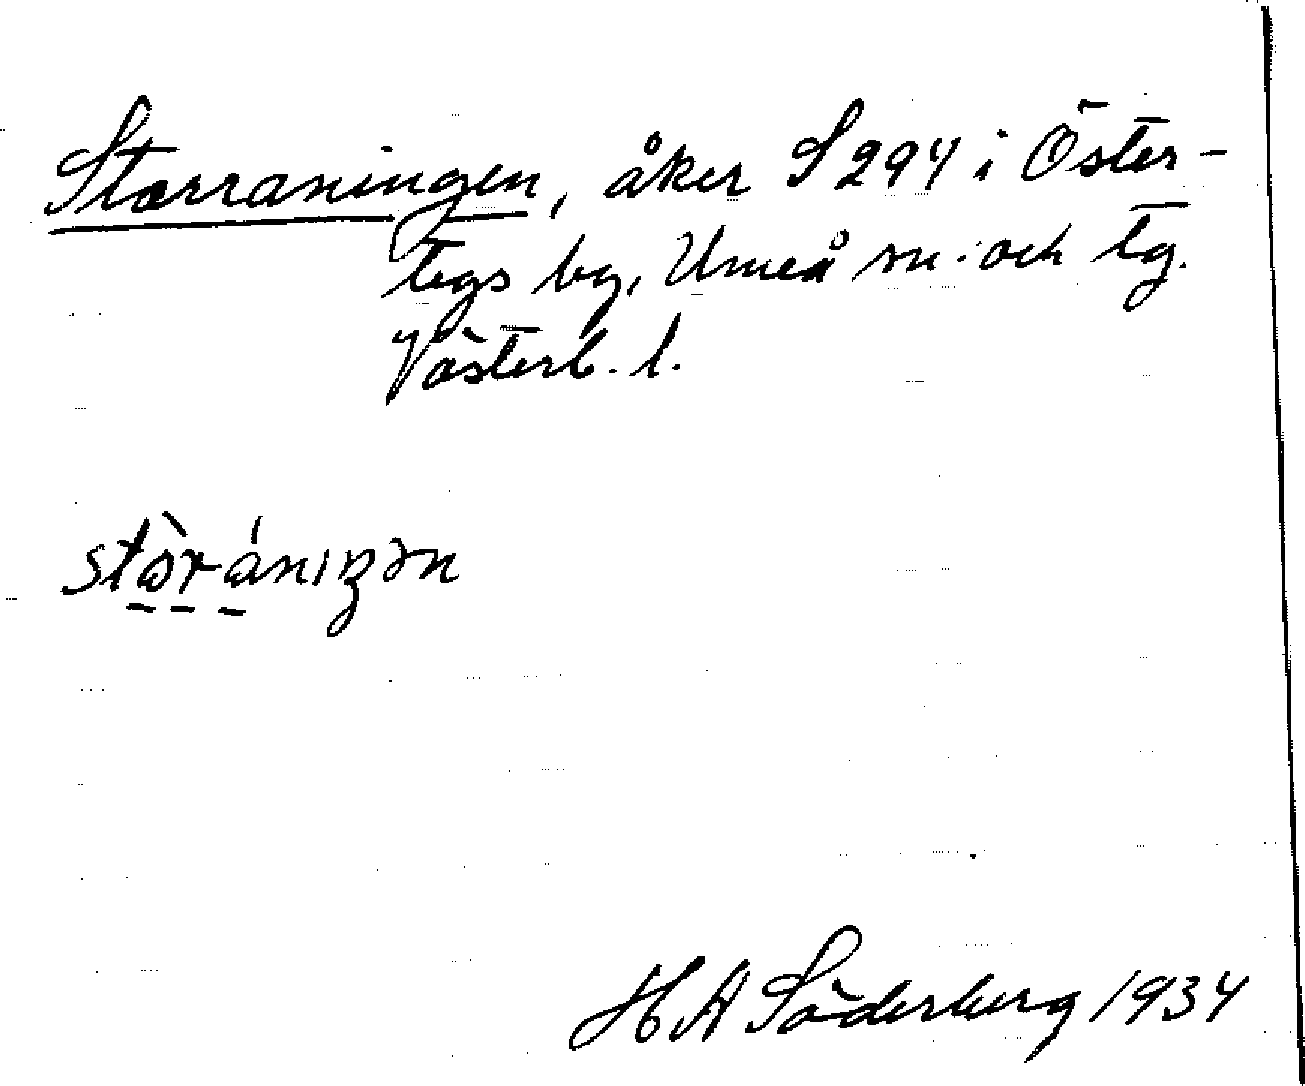 Storraningen, åker S 294 i Öster-
tegs by, Umeå sn. och tg.
Västerb. l.
stòránıŋən
H A Söderberg 1934